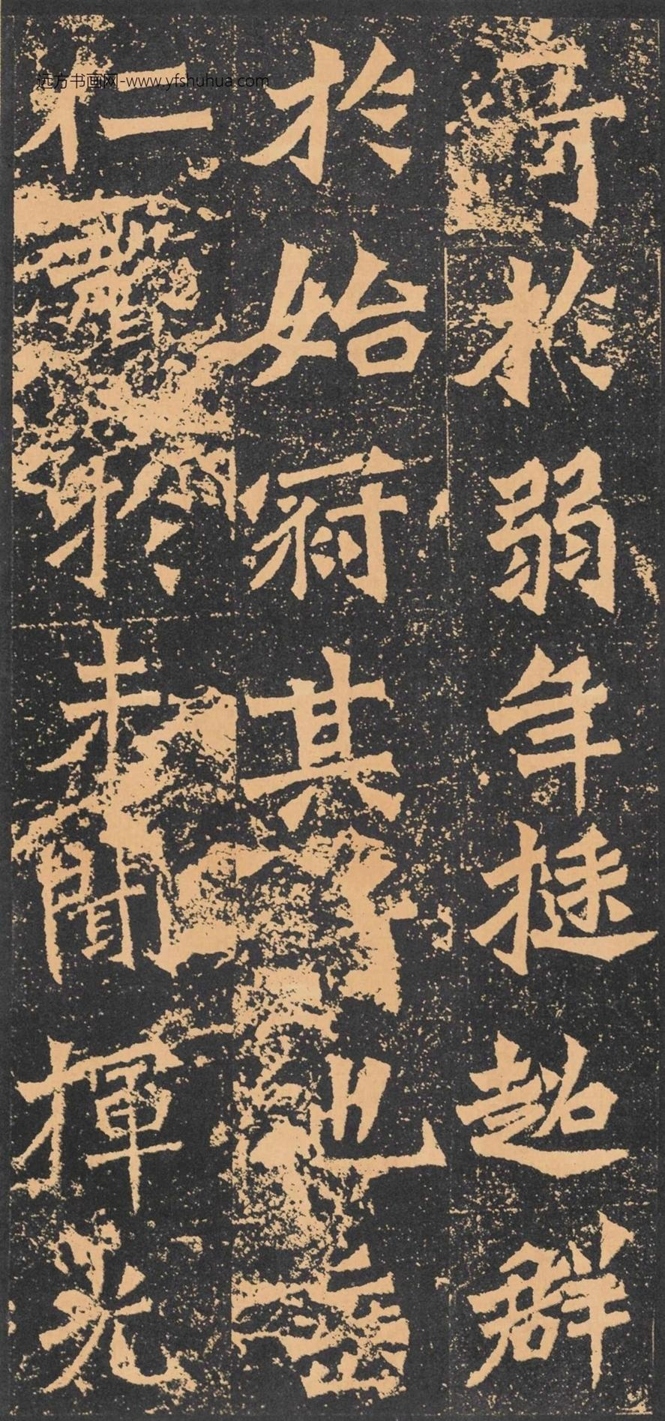 远方书画网-www.yfshuhua.com
奇於弱年挺超群
於始冠其也垂
仁聲於未聞揮光